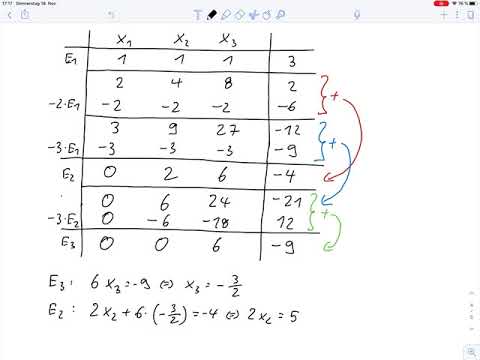 17:17 Donnerstag 18. Nov.
x₁ x₂ x₃
E₁ 1 1 1 3
2 4 8 2
-2·E₁ -2 -2 -2 -6 +
3 9 27 -12
-3·E₁ -3 -3 -3 -9 +
E₂ 0 2 6 -4
0 6 24 -21
-3·E₂ 0 -6 -18 12 +
E₃ 0 0 6 -9
E₃: 6x₃ = -9 ⇔ x₃ = -3/2
E₂: 2x₂ + 6·(-3/2) = -4 ⇔ 2x₂ = 5